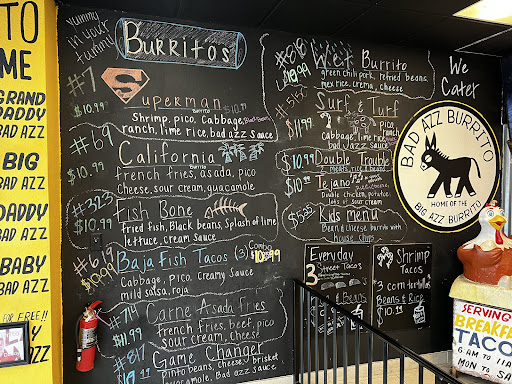 TO
ME
GRAND
DADDY
BAD AZZ
BIG
BAD AZZ
DADDY
BAD AZZ
BABY
BAD AZZ
FOR FREE!!
Yummy
in your
tummy
Burritos
#1
$10.99
S
Superman $10.99
Shrimp, pico, Cabbage, Black-Beans
ranch, lime rice, bad azz sauce
#69
$10.99
California
Burrito
french fries, asada, pico
Cheese, sour cream, guacamole
#323
$10.99
Fish Bone
Fried fish, Black beans, Splash of lime
lettuce, cream sauce
#619
Baja Fish Tacos (3) Combo
Cabbage, pico, Creamy Sauce
mild salsa, roja
#714
Carne Asada Fries
french fries, beef, pico
sour cream, cheese
#817
Game Changer
pinto beans, cheese, brisket
guacamole, Bad azz sauce
#818
Wet Burrito
green chili pork, refried beans,
mex rice, crema, cheese
#515
$11.99
Surf & Turf
pico
Cabbage, lime rice, ranch
bad azz sauce
$10.99
Double Trouble
meats, rice, beans
$10.99
Tejano
Double chicken, potatoes
lots of sour cream
Kids menu
Bean & cheese burrito with
house chips
Everyday
3
Street Tacos
& Beans
Shrimp
Tacos
3 corn tortillas
Beans & Rice
$10.99
We
Cater
BAD AZZ BURRITO
HOME OF THE
BIG AZZ BURRITO
SERVING
BREAKFAST
TACO
6 AM TO 11A
MON TO SA